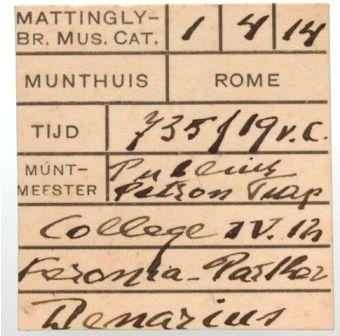 MATTINGLY-
BR. MUS. CAT. 1 4 14
MUNTHUIS ROME
TIJD 735/19 v. C.
MUNT-
MEESTER Publius
Petron Turp
College IV. 1h
Feronia - Parther
Denarius